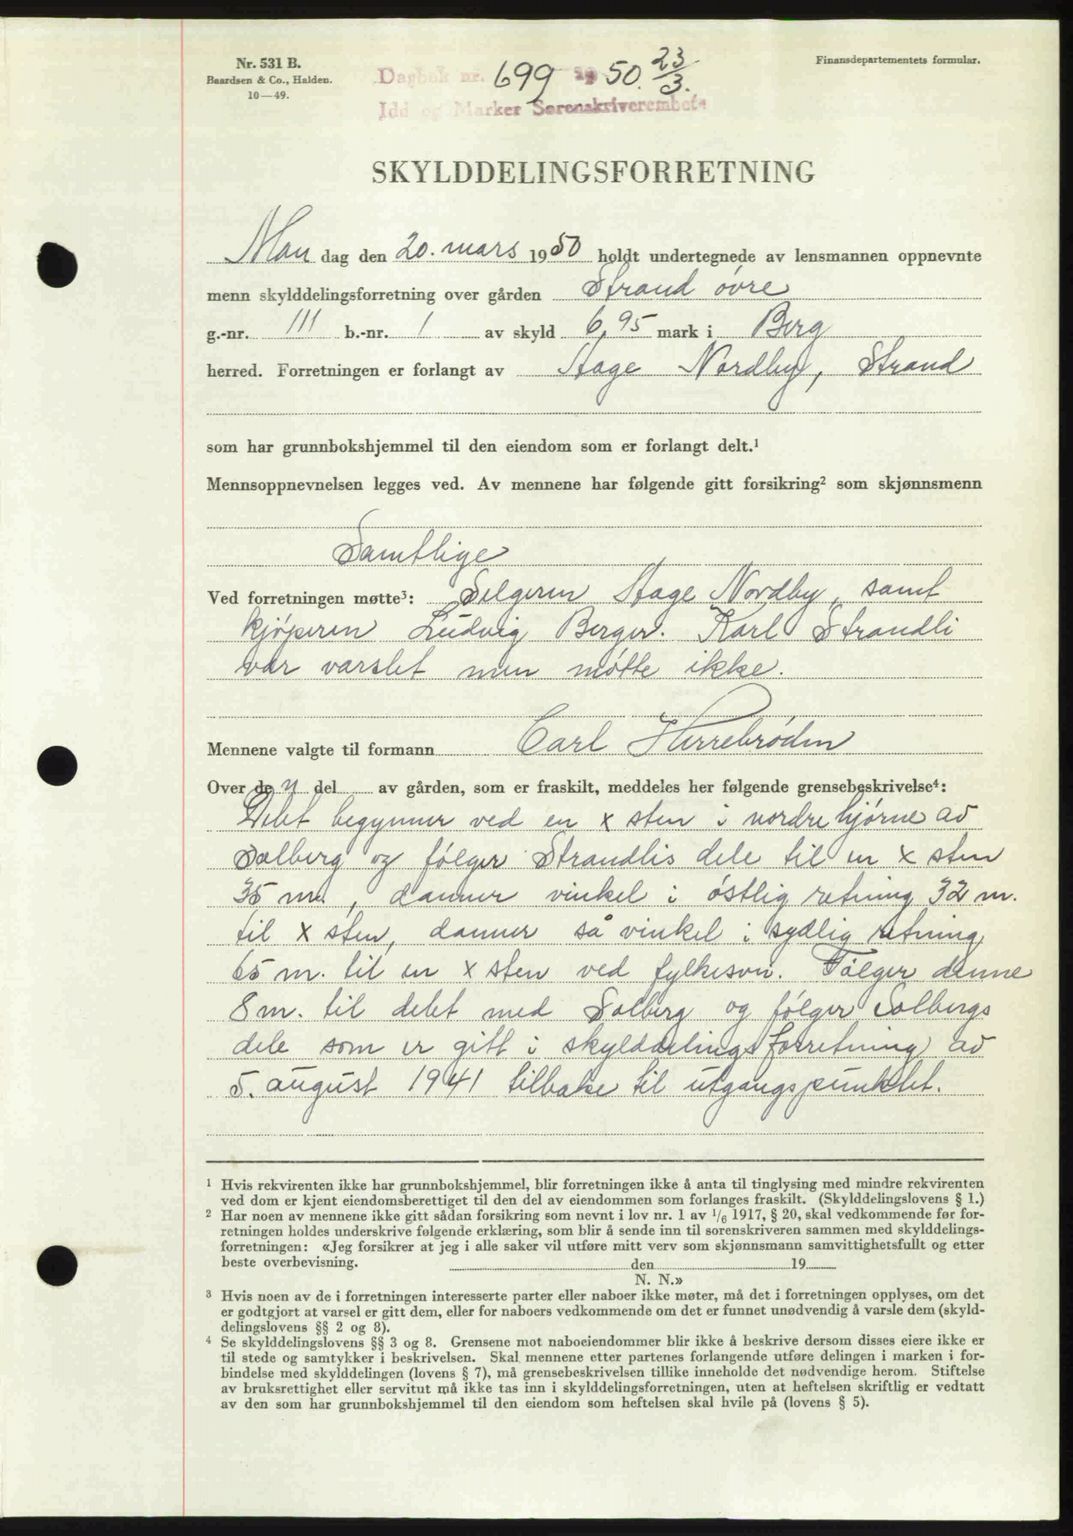 Nr. 531 B.
Baardsen & Co., Halden.
10—49.
Dagbok nr. 699 19 50. 23/3.
Idd og Marker Sorenskriverembete
Finansdepartementets formular.
SKYLDDELINGSFORRETNING
Man dag den 20. mars 1950 holdt undertegnede av lensmannen oppnevnte
menn skylddelingsforretning over gården Strand øvre
g.-nr. 111 b.-nr. 1 av skyld 6,95 mark i Berg
herred. Forretningen er forlangt av Aage Nordby, Strand
som har grunnbokshjemmel til den eiendom som er forlangt delt.¹
Mennsoppnevnelsen legges ved. Av mennene har følgende gitt forsikring² som skjønnsmenn
Samtlige
Ved forretningen møtte³: Selgeren Aage Nordby, samt
kjøperen Ludvig Berger. Karl Strandli
var varslet men møtte ikke.
Mennene valgte til formann Carl Herrebrøden
Over den del av gården, som er fraskilt, meddeles her følgende grensebeskrivelse⁴:
Delet begynner ved en x sten i nordre hjørne av
Solberg og følger Strandlis dele til en x sten
35 m., danner vinkel i østlig retning 32 m.
til x sten, danner så vinkel i sydlig retning
65 m. til en x sten ved fylkesvn. Følger denne
8 m. til delet med Solberg og følger Solbergs
dele som er gitt i skylddelingsforretning av
5. august 1941 tilbake til utgangspunktet.
¹ Hvis rekvirenten ikke har grunnbokshjemmel, blir forretningen ikke å anta til tinglysing med mindre rekvirenten
ved dom er kjent eiendomsberettiget til den del av eiendommen som forlanges fraskilt. (Skylddelingslovens § 1.)
² Har noen av mennene ikke gitt sådan forsikring som nevnt i lov nr. 1 av 1/6 1917, § 20, skal vedkommende før for-
retningen holdes underskrive følgende erklæring, som blir å sende inn til sorenskriveren sammen med skylddelings-
forretningen: «Jeg forsikrer at jeg i alle saker vil utføre mitt verv som skjønnsmann samvittighetsfullt og etter
beste overbevisning. den 19
N. N.»
³ Hvis noen av de i forretningen interesserte parter eller naboer ikke møter, må det i forretningen opplyses, om det
er godtgjort at varsel er gitt dem, eller for naboers vedkommende om det er funnet unødvendig å varsle dem (skyld-
delingslovens §§ 2 og 8).
⁴ Se skylddelingslovens §§ 3 og 8. Grensene mot naboeiendommer blir ikke å beskrive dersom disses eiere ikke er
til stede og samtykker i beskrivelsen. Skal mennene etter partenes forlangende utføre delingen i marken i for-
bindelse med skylddelingen (lovens § 7), må grensebeskrivelsen tillike inneholde det nødvendige herom. Stiftelse
av bruksrettighet eller servitut må ikke tas inn i skylddelingsforretningen, uten at heftelsen skriftlig er vedtatt
av den som har grunnbokshjemmel til den eiendom som heftelsen skal hvile på (lovens § 5).